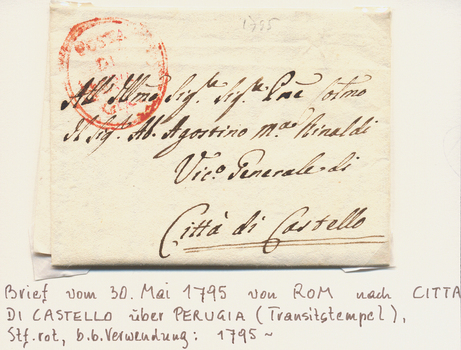 1795
POSTA
DI
All' Illmo Sigre Sigre Pne Colmo
Il Sig. Ab. Agostino Ma Rinaldi
Vico Generale di
Città di Castello
Brief vom 30. Mai 1795 von ROM nach CITTA
DI CASTELLO über PERUGIA (Transitstempel),
Stf.rot, b.b.Verwendung: 1795 ~